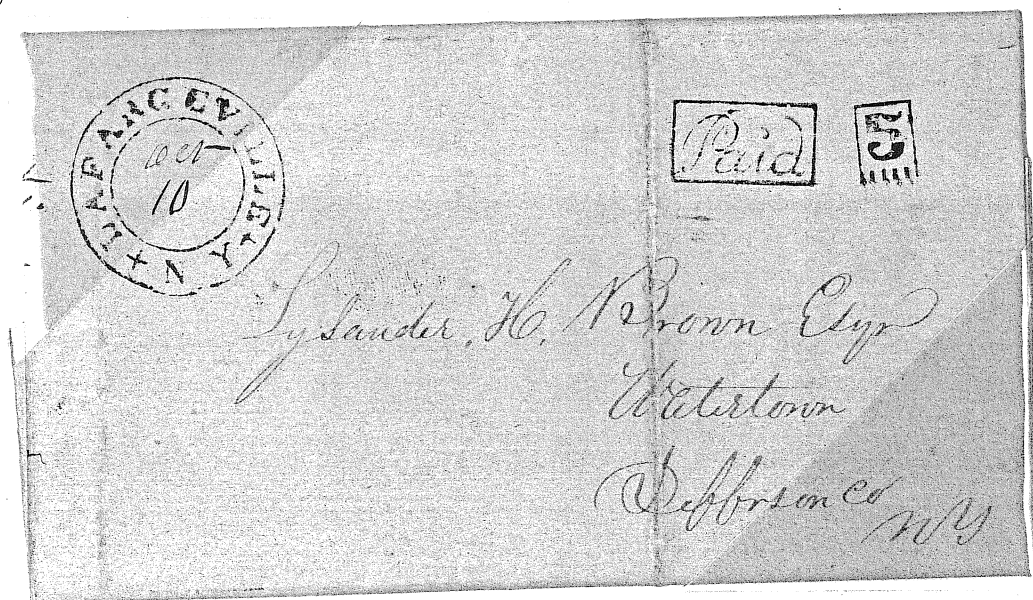 LAFARGEVILLE. N Y +
Oct
10
Paid
5
Lysander. H. Brown Esqr
Watertown
Jefferson Co
NY